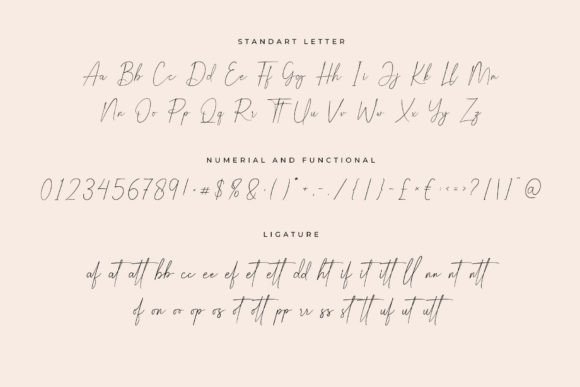 STANDART LETTER
Aa Bb Cc Dd Ee Ff Gg Hh Ii Jj Kk Ll Mm
Nn Oo Pp Qq Rr Tt Uu Vv Ww Xx Yy Zz
NUMERIAL AND FUNCTIONAL
0123456789! · # $ % & · ( ) * + , - . / { | } - £ × € : < = > ? [ \ ] " @
LIGATURE
af at att bb cc ee ef et ett dd ht if it itt ll nn nt ntt
of on oo op os ot ott pp rr ss st tt uf ut utt